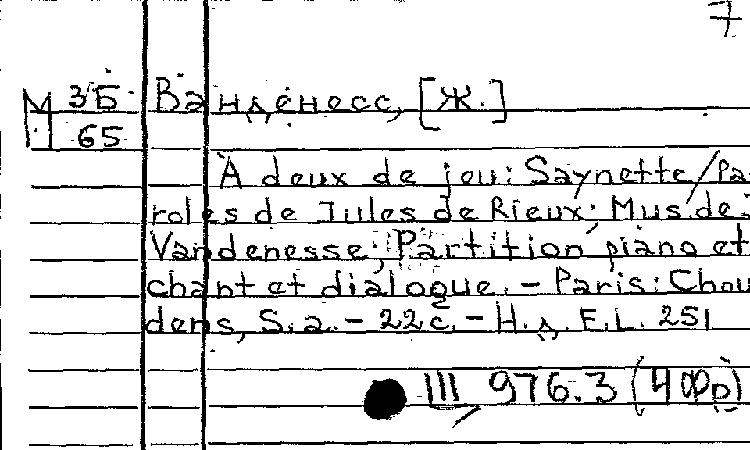 7
М 3Б Ванденесс, [Ж.]
65
À deux de jeu: Saynette/Pa-
roles de Jules de Rieux; Mus de J.
Vandenesse; Partition piano et
chant et dialogue. – Paris: Chou-
dens, S.a. – 22 с. – Н.д. E.L. 251
III 976.3 (4Фр)